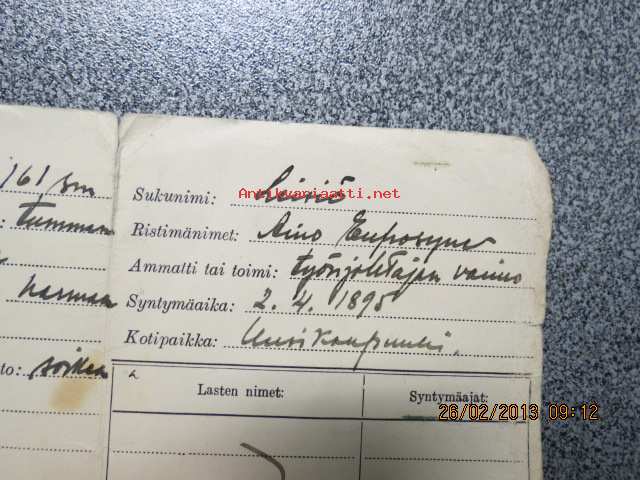 161 sm
tumman
harmaa
to: soikea
Sukunimi:
Antikvariaatti.net
Ristimänimet: Aino Euprosyne
Ammatti tai toimi: työnjohtajan vaimo
Syntymäaika: 2. 4. 1895
Kotipaikka: Uusikaupunki.
Lasten nimet: Syntymäajat:
26/02/2013 09:12